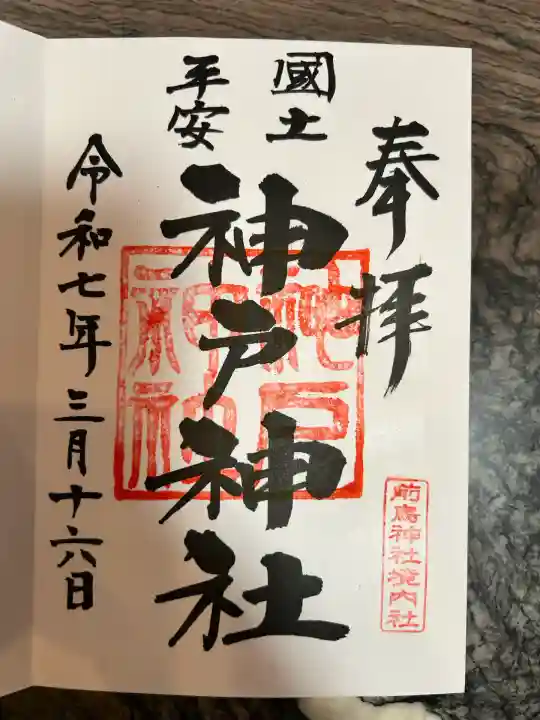 奉拝
國土
平安
神戸神社
神戸
神社
前鳥神社境内社
令和七年三月十六日